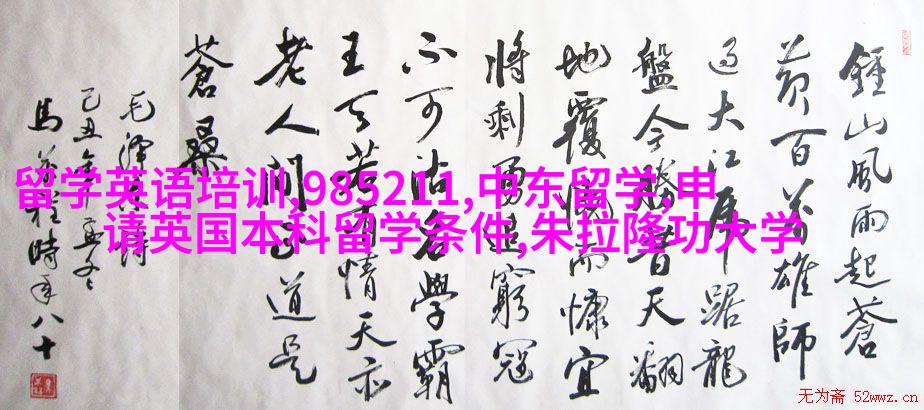 留学英语培训,985211,中东留学,申
请英国本科留学条件,朱拉隆功大学
鍾山風雨起蒼
黄百萬雄師
過大江虎踞龍
盤今勝昔天翻
地覆慨而慷宜
將剩勇追窮寇
不可沽名學霸
王天若有情天亦
老人間正道是
蒼桑
毛澤東詩
己丑年孟冬
馬時年八十
无为斋 52wwz.cn